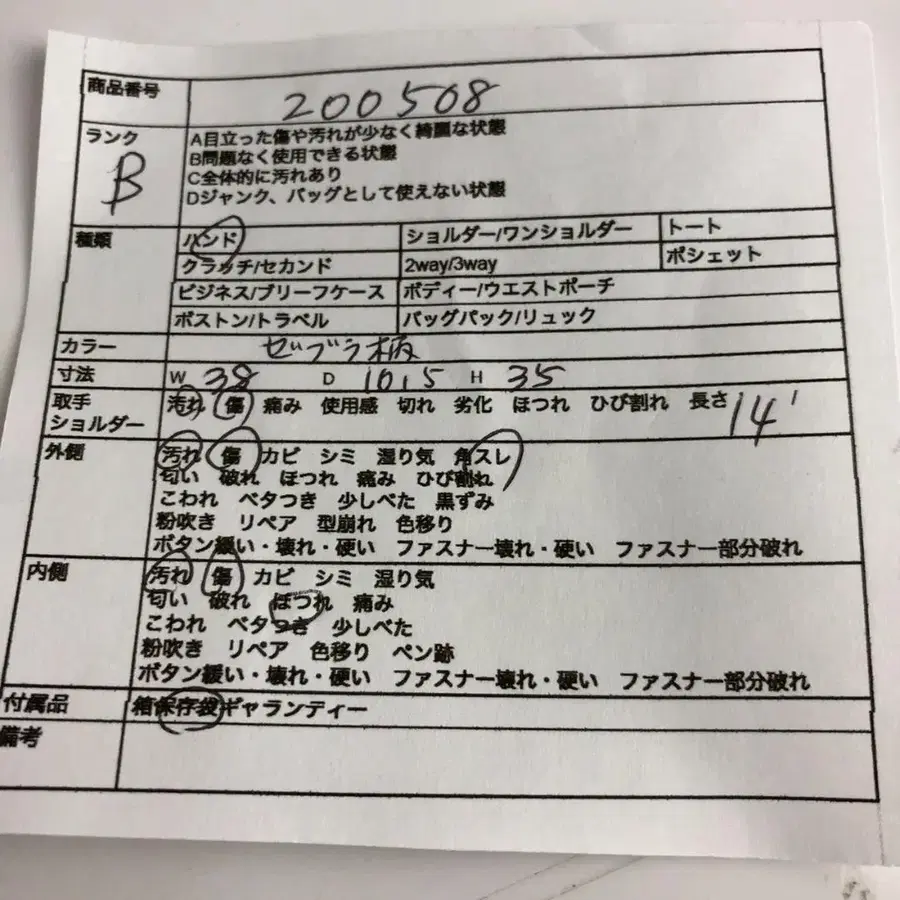 商品番号 200508
ランク B
A目立った傷や汚れが少なく綺麗な状態
B問題なく使用できる状態
C全体的に汚れあり
Dジャンク、バッグとして使えない状態
種類 ハンド ショルダー/ワンショルダー トート
クラッチ/セカンド 2way/3way ポシェット
ビジネス/ブリーフケース ボディー/ウエストポーチ
ボストン/トラベル バッグパック/リュック
カラー ゼブラ柄
寸法 W 38 D 10.5 H 35
取手 汚れ 傷 痛み 使用感 切れ 劣化 ほつれ ひび割れ 長さ 14'
ショルダー
外側 汚れ 傷 カビ シミ 湿り気 角スレ
匂い 破れ ほつれ 痛み ひび割れ
こわれ ベタつき 少しべた 黒ずみ
粉吹き リペア 型崩れ 色移り
ボタン緩い・壊れ・硬い ファスナー壊れ・硬い ファスナー部分破れ
内側 汚れ 傷 カビ シミ 湿り気
匂い 破れ ほつれ 痛み
こわれ ベタつき 少しべた
粉吹き リペア 色移り ペン跡
ボタン緩い・壊れ・硬い ファスナー壊れ・硬い ファスナー部分破れ
付属品 箱保存袋ギャランティー
備考